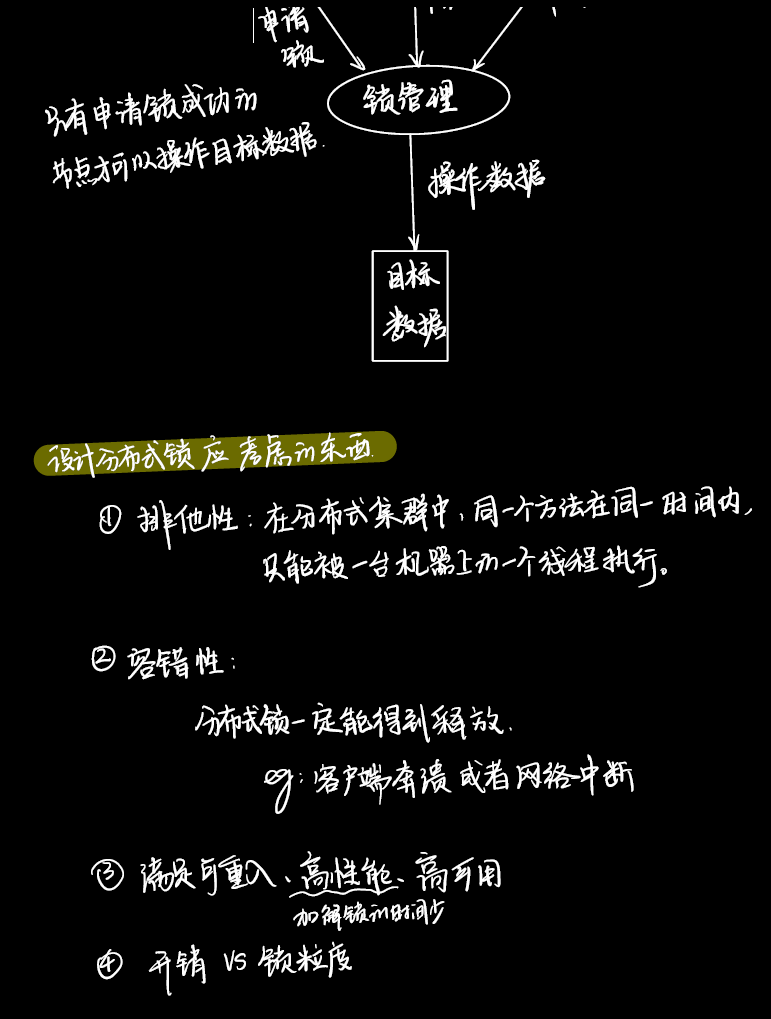 申请
锁
锁管理
只有申请锁成功的
节点才可以操作目标数据.
操作数据
目标
数据
设计分布式锁应考虑的东西.
① 排他性: 在分布式集群中, 同一个方法在同一时间内,
只能被一台机器上的一个线程执行。
② 容错性:
分布式锁一定能得到释放.
eg: 客户端奔溃或者网络中断
③ 满足可重入、高性能、高可用
加解锁的时间少
④ 开销 VS 锁粒度